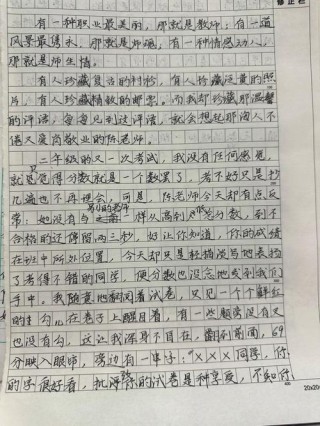 修正栏
有一种职业最美丽,那就是教师;有一道
风景最隽永,那就是师魂;有一种情感动人,
那就是师生情。
有人珍藏复古的衬衫,有人珍藏泛黄的照
片,有人珍藏精致的邮票。而我却珍藏那温馨
的评语,每每见到这评语,就会想起那诲人不
倦又爱岗敬业的陈老师。
二年级的又一次考试,我没有任何感觉,
就只觉得分数就是一个数罢了,考不好只是抄
几遍也不再理会,可是,陈老师今天却有点反
常,她没有与别的老师一样从高到低念分数,到不
合格的还停留两三秒,好让你知道,你的成绩
在班中所处位置,今天却只是轻描淡写地表扬
了考得不错的同学,便分数也没念地发到我们
手中。我随意地翻阅着试卷,只见一个个鲜红
的勾儿在卷子上醒目着,有一些题旁没有叉
也没有勾,这让我浑身不自在,翻到前面,69
分映入眼帘,旁边有一串字:"XXX同学,你
的字很好看,批你的试卷是种享受,不知你
20×20